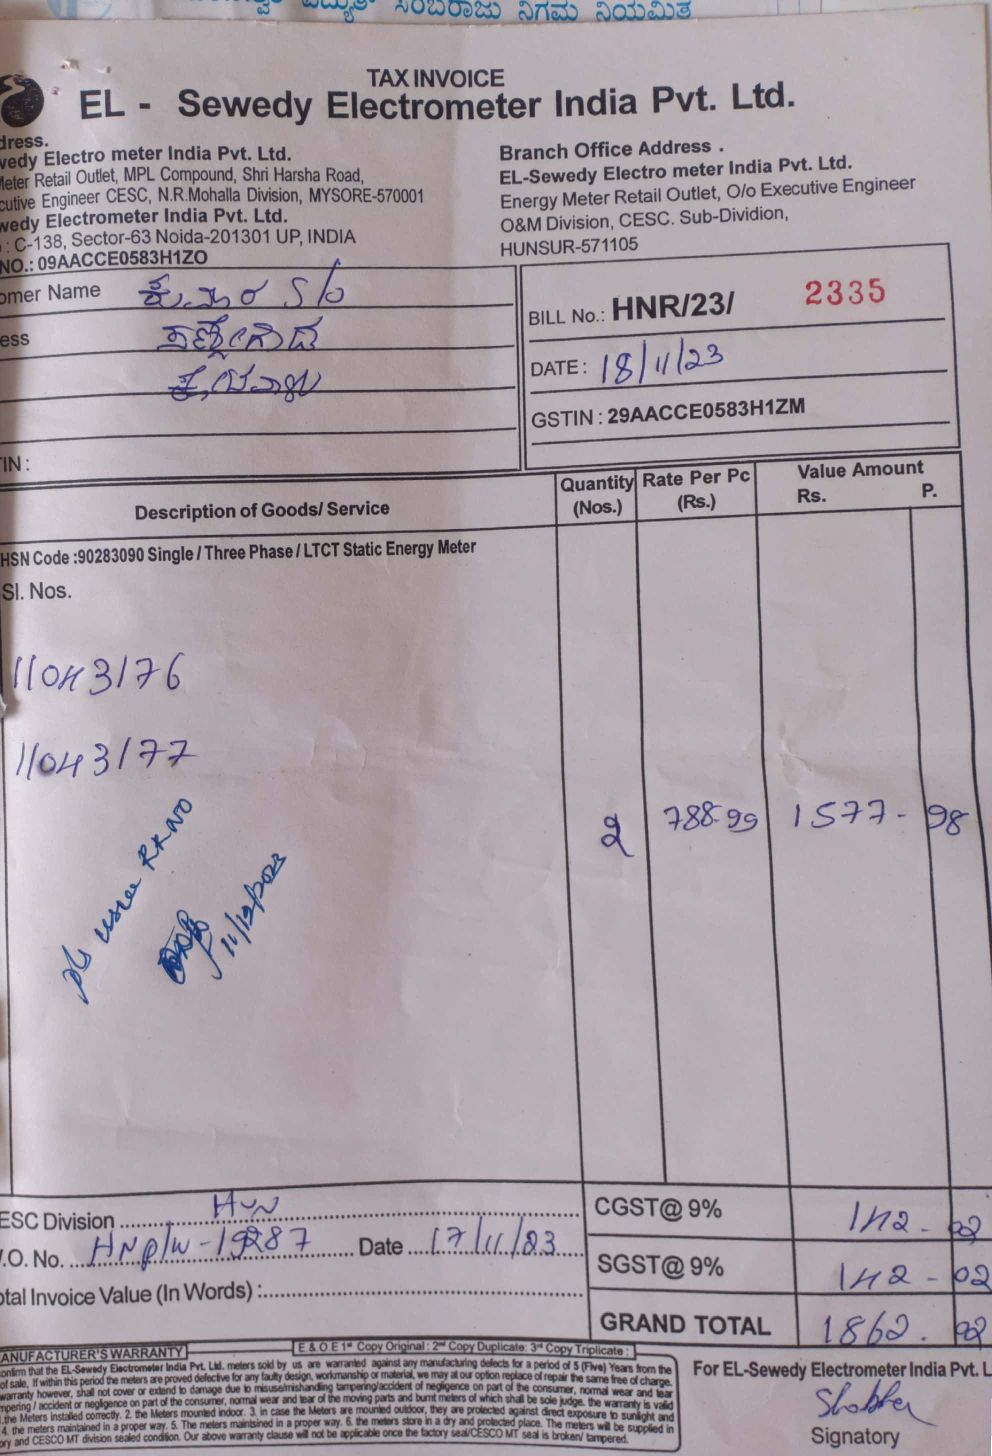 ವಿದ್ಯುತ್ ಸರಬರಾಜು ನಿಗಮ ನಿಯಮಿತ
TAX INVOICE
EL - Sewedy Electrometer India Pvt. Ltd.
dress.
wedy Electro meter India Pvt. Ltd.
Meter Retail Outlet, MPL Compound, Shri Harsha Road,
cutive Engineer CESC, N.R.Mohalla Division, MYSORE-570001
wedy Electrometer India Pvt. Ltd.
: C-138, Sector-63 Noida-201301 UP, INDIA
NO.: 09AACCE0583H1ZO
Branch Office Address .
EL-Sewedy Electro meter India Pvt. Ltd.
Energy Meter Retail Outlet, O/o Executive Engineer
O&M Division, CESC. Sub-Dividion,
HUNSUR-571105
omer Name ಕುಮಾರ S/o
ess
TIN :
BILL No.: HNR/23/ 2335
DATE : 18/11/23
GSTIN : 29AACCE0583H1ZM
Description of Goods/ Service
Quantity (Nos.)
Rate Per Pc (Rs.)
Value Amount
Rs. P.
HSN Code :90283090 Single / Three Phase / LTCT Static Energy Meter
Sl. Nos.
11043176
11043177
2 788-99 1577- 98
RRNO
11/12/2023
ESC Division Hun
.O. No. Date 17/11/23
otal Invoice Value (In Words) :
CGST@ 9% 142 - 02
SGST@ 9% 142 - 02
GRAND TOTAL 1862. 02
E & O E 1st Copy Original : 2nd Copy Duplicate: 3rd Copy Triplicate :
ANUFACTURER'S WARRANTY
confirm that the EL-Sewedy Electrometer India Pvt. Ltd. meters sold by us are warranted against any manufacturing defects for a period of 5 (Five) Years from the
of sale, If within this period the meters are proved defective for any faulty design, workmanship or material, we may at our option replace of repair the same free of charge.
warranty however, shall not cover or extend to damage due to misuse/mishandling tampering/accident of negligence on part of the consumer, normal wear and tear
mpering / accident or negligence on part of the consumer, normal wear and tear of the moving parts and burnt meters of which shall be sole judge. the warranty is valid
.the Meters installed correctly. 2. the Meters mounted indoor. 3. in case the Meters are mounted outdoor, they are protected against direct exposure to sunlight and
4. the meters maintained in a proper way. 5. The meters maintsined in a proper way. 6. the meters store in a dry and protected place. The meters will be supplied in
ory and CESCO MT division sealed condition. Our above warranty clause will not be applicable once the factory seal/CESCO MT seal is broken/ tampered.
For EL-Sewedy Electrometer India Pvt. L
Signatory